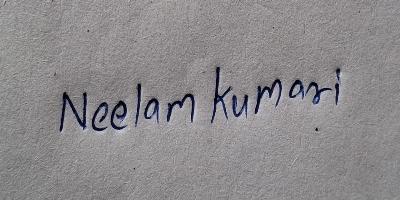 Neelam kumari